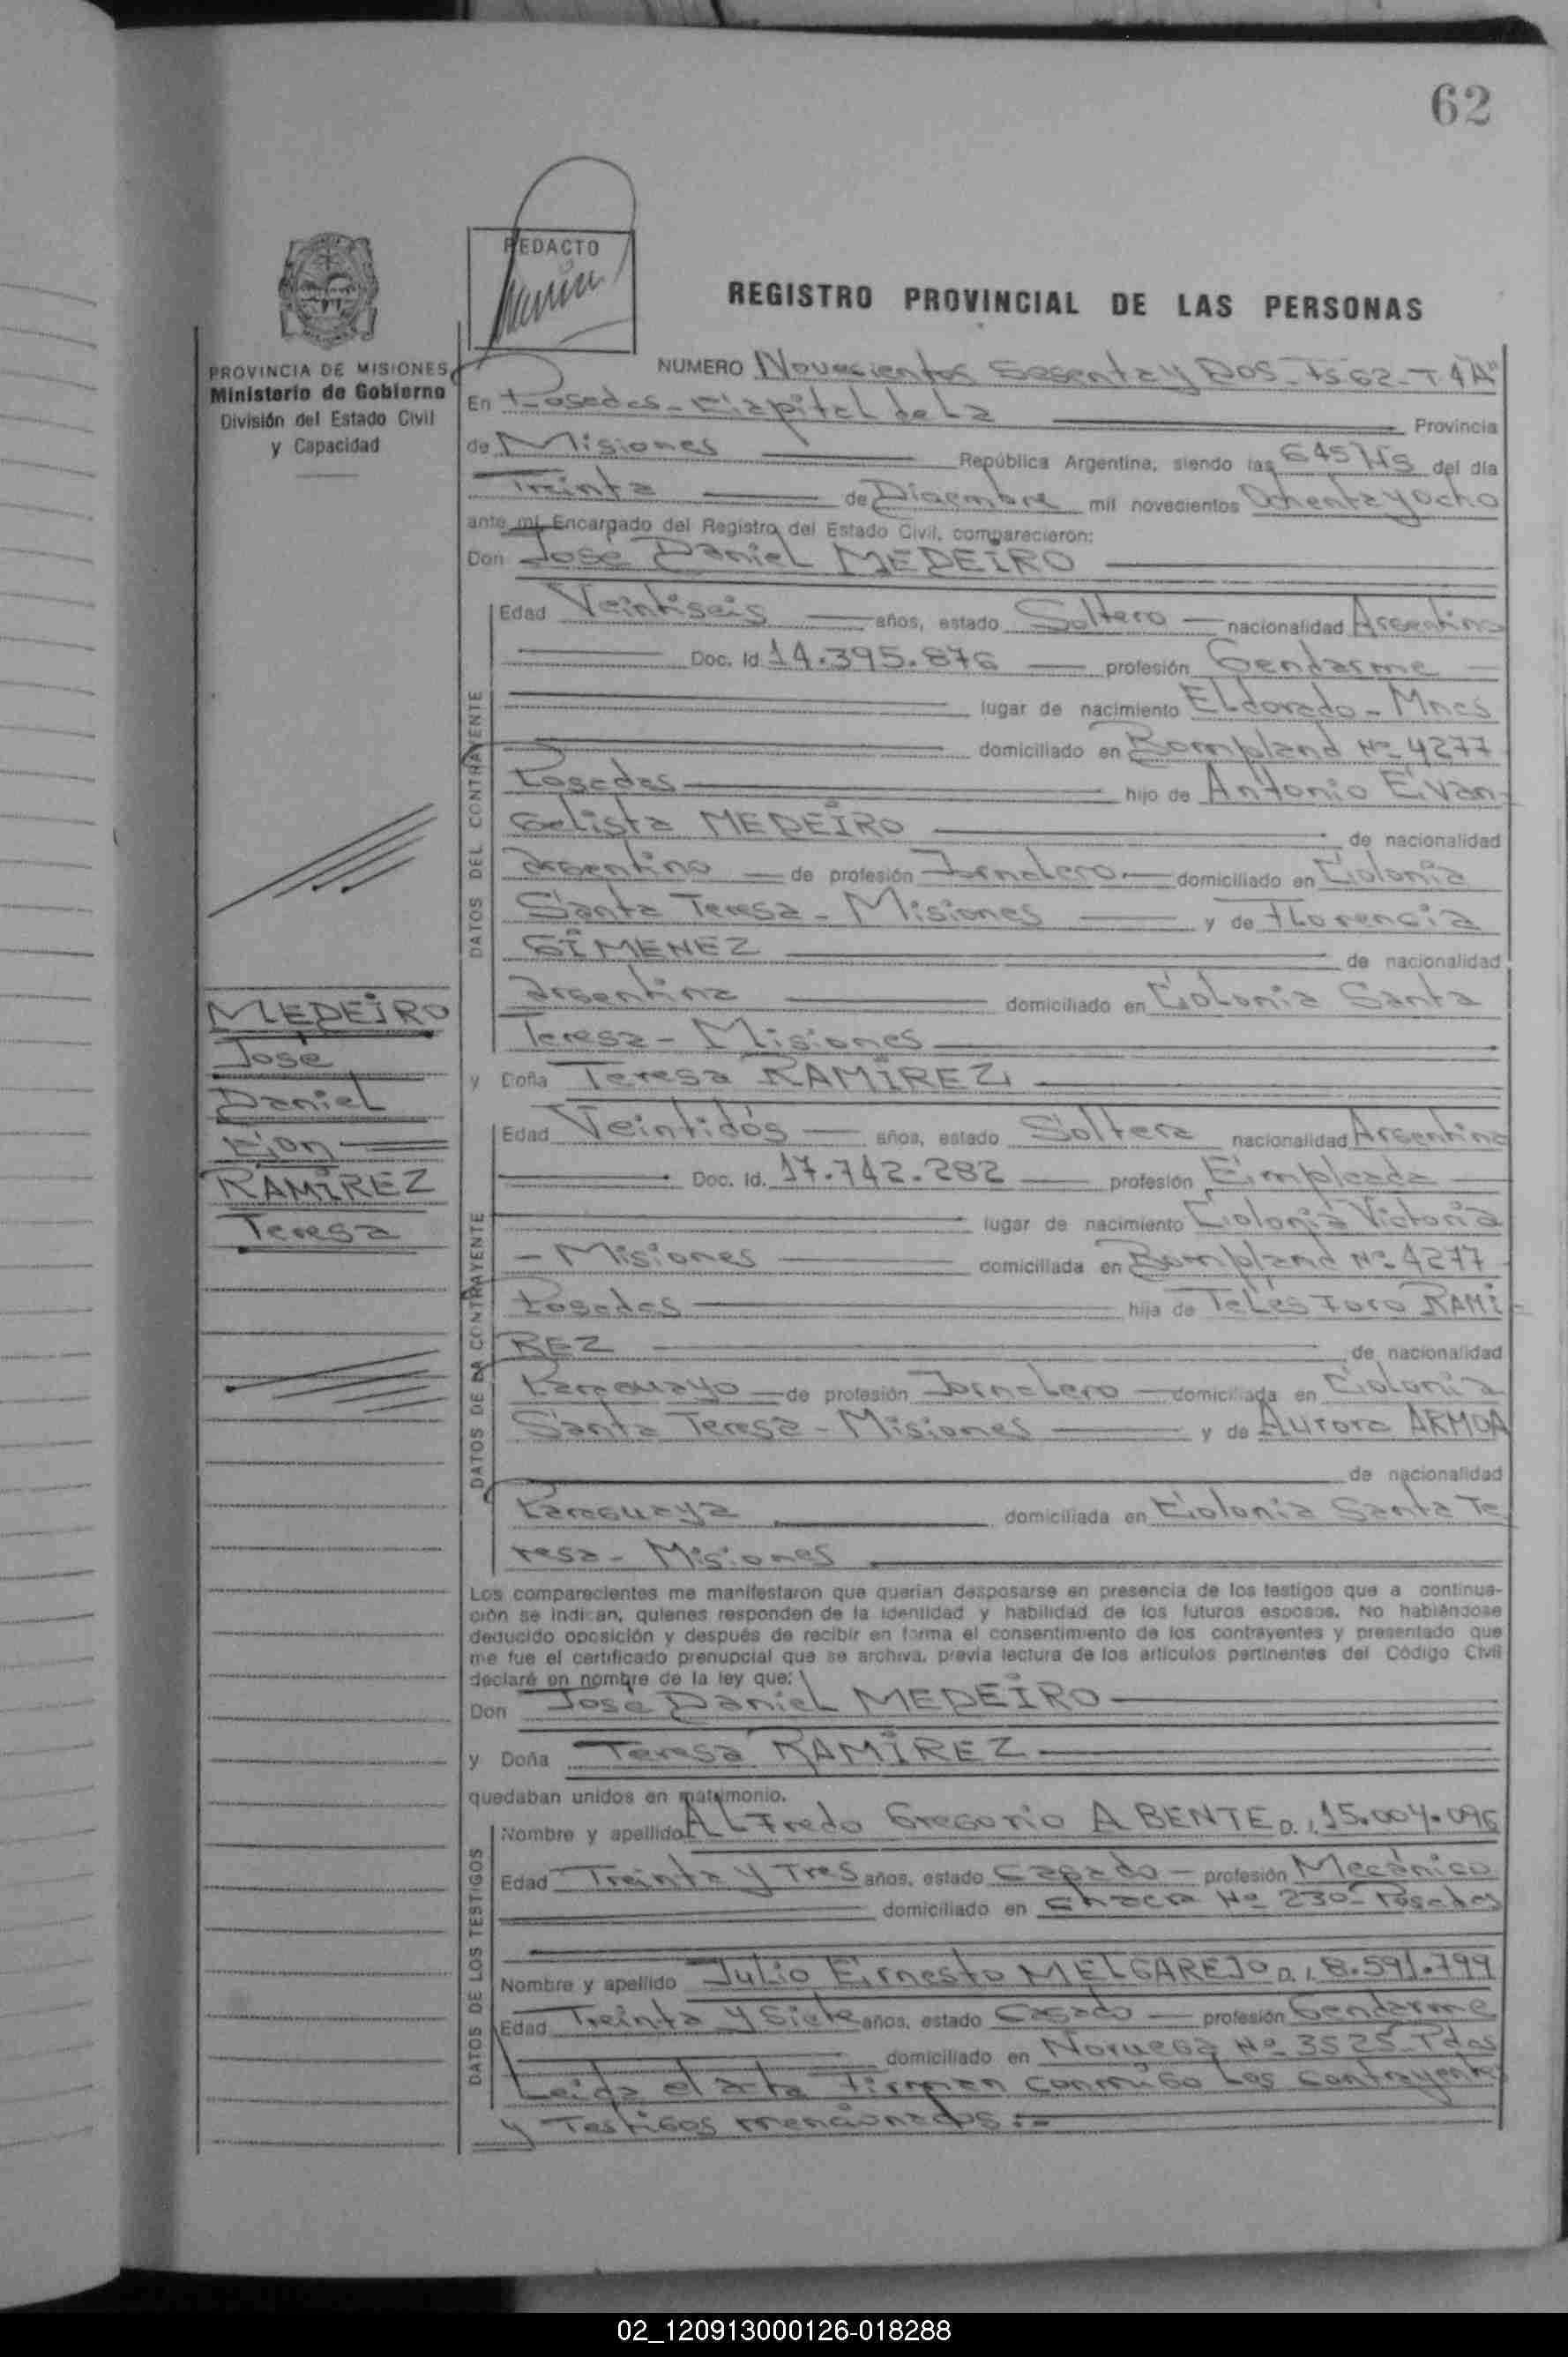 62
REDACTO
REGISTRO PROVINCIAL DE LAS PERSONAS
PROVINCIA DE MISIONES
Ministerio de Gobierno
División del Estado Civil
y Capacidad
NUMERO Novecientos Sesenta y Dos - Fs 62 - T 4 "A"
En Posadas - Capital de La Provincia
de Misiones República Argentina, siendo las 645 Hs del día
Treinta de Diciembre mil novecientos Ochenta y ocho
ante mí, Encargado del Registro del Estado Civil, comparecieron:
Don José Daniel MEDEIRO
DATOS DEL CONTRAYENTE
Edad Veintiseis años, estado Soltero nacionalidad Argentino
Doc. Id. 14.395.876 profesión Gendarme
lugar de nacimiento Eldorado - Mnes
domiciliado en Bompland Nº 4277
Posadas hijo de Antonio Evan-
gelista MEDEIRO de nacionalidad
argentino de profesión Jornalero domiciliado en Colonia
Santa Teresa - Misiones y de Florencia
GIMENEZ de nacionalidad
argentina domiciliado en Colonia Santa
Teresa - Misiones
y Doña Teresa RAMIREZ
MEDEIRO
José
Daniel
Con
RAMIREZ
Teresa
DATOS DE LA CONTRAYENTE
Edad Veintidós años, estado Soltera nacionalidad Argentina
Doc. Id. 17.742.282 profesión Empleada
lugar de nacimiento Colonia Victoria
- Misiones domiciliada en Bompland Nº 4277
Posadas hija de Telesforo RAMI-
REZ de nacionalidad
Paraguayo de profesión Jornalero domiciliada en Colonia
Santa Teresa - Misiones y de Aurora ARMOA
de nacionalidad
Paraguaya domiciliada en Colonia Santa Te
resa - Misiones
Los comparecientes me manifestaron que querían desposarse en presencia de los testigos que a continua-
ción se indican, quienes responden de la identidad y habilidad de los futuros esposos. No habiéndose
deducido oposición y después de recibir en forma el consentimiento de los contrayentes y presentado que
me fue el certificado prenupcial que se archiva, previa lectura de los artículos pertinentes del Código Civil
declaré en nombre de la ley que:
Don José Daniel MEDEIRO
y Doña Teresa RAMIREZ
quedaban unidos en matrimonio.
DATOS DE LOS TESTIGOS
Nombre y apellido Alfredo Gregorio ABENTE D.I. 15.004.096
Edad Treinta y Tres años, estado Casado profesión Mecánico
domiciliado en Chacra Nº 230 - Posadas
Nombre y apellido Julio Ernesto MELGAREJO D.I. 8.591.799
Edad Treinta y Siete años, estado Casado profesión Gendarme
domiciliado en Noruega Nº 3525 - Pdas
Leida el acta Firman conmigo Los contrayentes
y Testigos mencionados.-
02_120913000126-018288